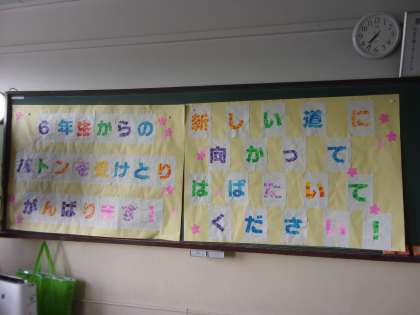 6年生からの
バトンを受けとり
がんばります!
新しい道に
向かって
はばたいて
ください!